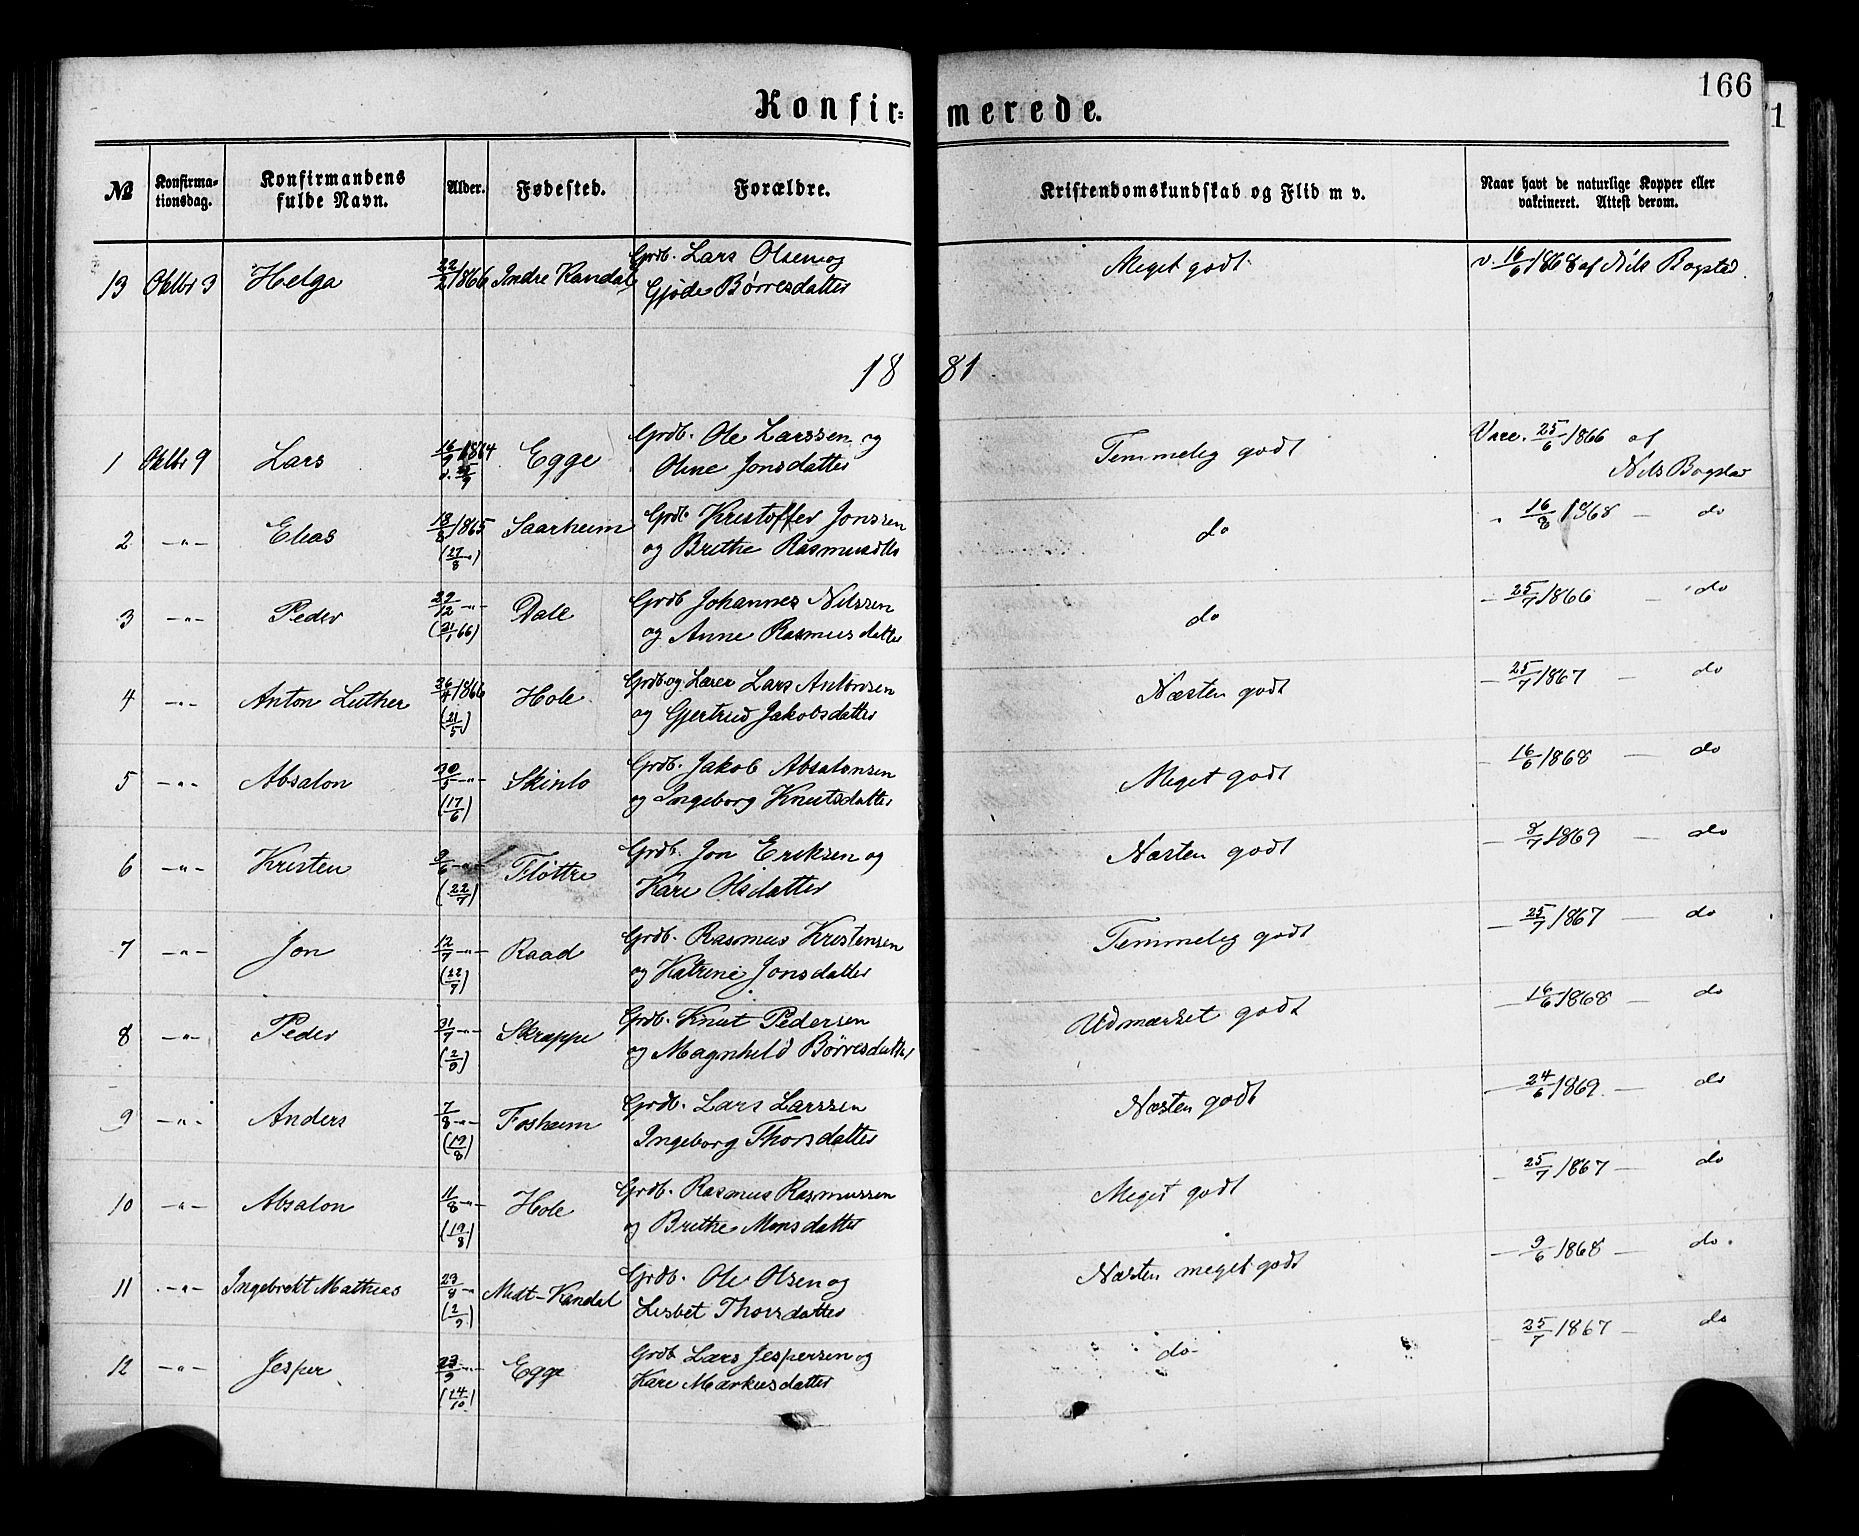 166
1
Konfir= merede.
№ Konfirma-tionsdag. Konfirmandens fulde Navn. Alder. Fødested. Forældre. Kristendomskundskab og Flid m v. Naar havt de naturlige Kopper eller vakcineret. Attest derom.
13 Oktbr 3 Helga 22/2 1866 Indre Kandal Grdb. Lars Olsen og Meget godt. v. 16/6 1868 af Nils Bogstad.
Gjøde Børresdatter
18 81
1 Oktbr 9 Lars 16/9 1864 Egge Grdb. Ole Larssen og Temmelig godt Vacc. 25/6 1866 af
Oline Jonsdatter Nils Bogstad
2 -"- Elias 18/8 1865 Saarheim Grdb. Kristoffer Jonssen do 16/8 1868 - do
(27/8 -) og Brithe Rasmusdtt
3 -"- Peder 29/12 -"- Dale Grdb Johannes Nilssen do - 25/7 1866 - do
(21/1 66) og Anne Rasmusdatter
4 -"- Anton Luther 26/4 1866 Hole Grdb. og Lærer Lars Antonsen Næsten godt - 25/7 1867 do
(21/5) og Gjertrud Jakobsdatter
5 -"- Absalon 30/5 -"- Skinlo Grdb. Jakob Absalonsen Meget godt - 16/6 1868 - do
(17/6) og Ingeborg Knutsdatter
6 -"- Kristen 9/6 -"- Fløttre Grdb. Jon Eriksen og Næsten godt - 8/7 1869 - do
(22/7) Kari Olsdatter
7 -"- Jon 12/7 -"- Raad Grdb. Rasmus Kristensen Temmelig godt - 25/7 1867 - do
(22/7) og Katrine Jonsdatter
8 -"- Peder 31/7 -"- Skrappe Grdb. Knut Pedersen Udmærket godt - 16/6 1868 - do
og Magnhild Børresdatter
9 -"- Anders 7/8 -"- Fosheim Grdb. Lars Larssen Næsten godt - 24/6 1869 - do
(19/8) Ingeborg Thorsdatter
10 -"- Absalon 11/8 -"- Hole Grdb. Rasmus Rasmussen Meget godt - 25/7 1867 - do
(19/8) og Brithe Monsdatter
11 -"- Ingebrekt Mathias 23/8 -"- Midt-Kandal Grdb. Ole Olsen og Næsten meget godt - 9/6 1868 - do.
(2/9) Lisbet Thorsdatter
12 -"- Jesper 23/9 -"- Egge Grdb Lars Jespersen og do - 25/7 1867 - do
(14/10) Kari Markusdatter